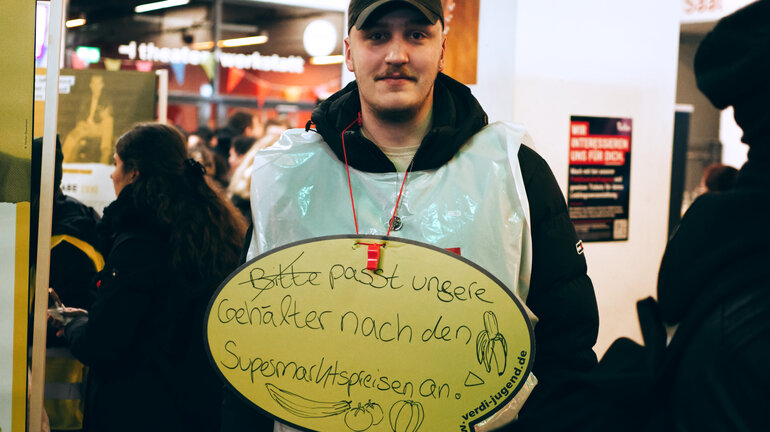 theater werkstatt
Saal
WIR
INTERESSIEREN
UNS FÜR DICH.
Bitte passt unsere
Gehälter nach den
Supermarktspreisen an.
w.verdi-jugend.de